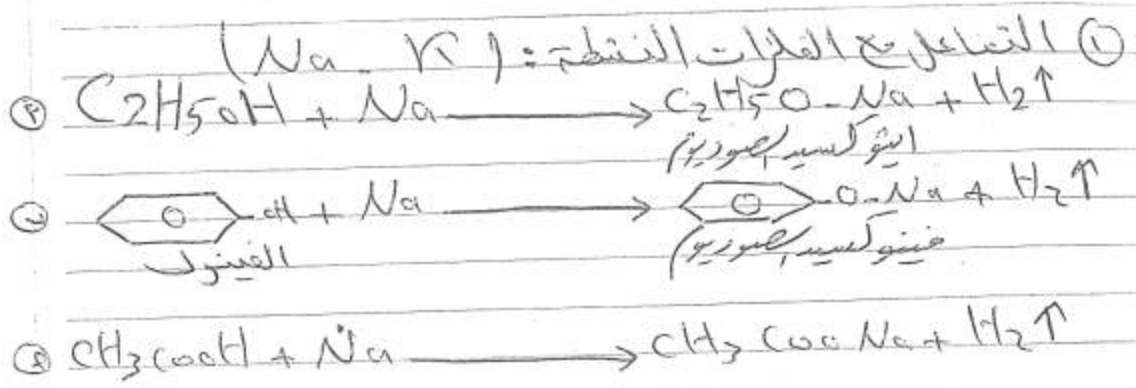 ① التفاعل مع الفلزات النشطة : ( Na - K )
Ⓟ C2H5OH + Na → C2H5O-Na + H2↑
ايثوكسيد الصوديوم
-OH + Na → -O-Na + H2↑
الفينول فينوكسيد الصوديوم
CH3COOH + Na → CH3COONa + H2↑